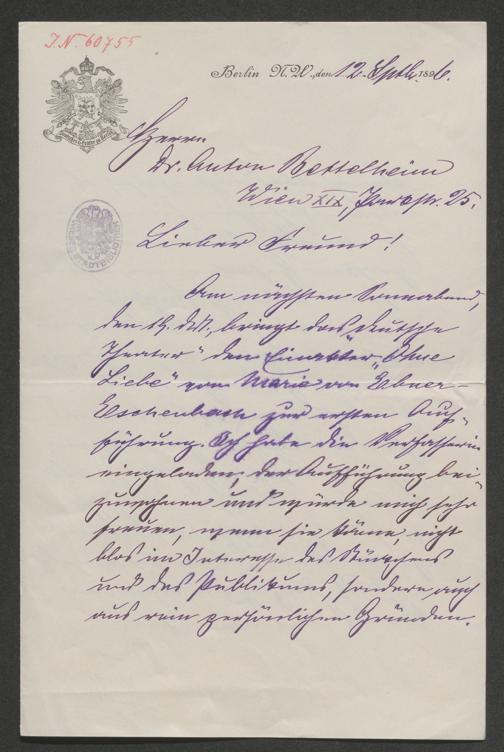 J.N. 60755
Berlin N.W., den 12. Sptb. 1896.
Deutsches Theater zu Berlin
Herrn
Dr. Anton Bettelheim
Wien XIX, Parkstr. 25.
Lieber Freund!
Am nächsten Sonnabend,
den 19. ds., bringt das „Deutsche
Theater" den Einakter „Ohne
Liebe" von Marie von Ebner-
Eschenbach zur ersten Auf-
führung. Ich habe die Verfasserin
eingeladen, der Aufführung bei-
zuwohnen und würde mich sehr
freuen, wenn sie käme, nicht
blos im Interesse des Stückchens
und des Publikums, sondern auch
aus rein persönlichen Gründen.